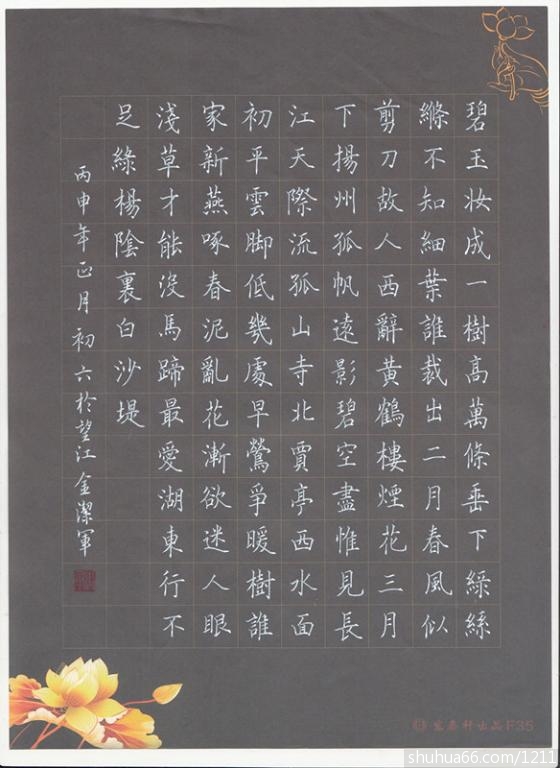 碧玉妆成一樹高萬條垂下綠絲
縧不知細葉誰裁出二月春風似
剪刀故人西辭黄鶴樓煙花三月
下揚州孤帆遠影碧空盡惟見長
江天際流孤山寺北賈亭西水面
初平雲脚低幾處早鶯爭暖樹誰
家新燕啄春泥亂花漸欲迷人眼
淺草才能沒馬蹄最愛湖東行不
足綠楊陰裏白沙堤
丙申年正月初六於望江金潔軍
出品F35
shuhua66.com/1211